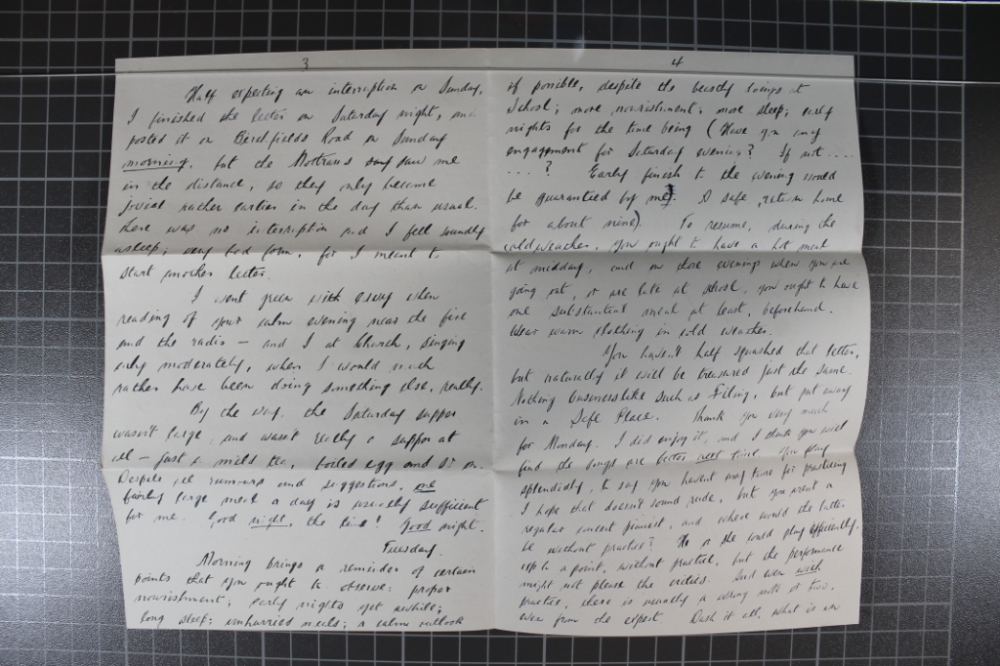 3
Half expecting an interruption on Sunday,
I finished the letter on Saturday night, and
posted it on Birchfields Road on Sunday
morning, but the Mottrams saw me
in the distance, so they only became
jovial rather earlier in the day than usual.
There was no interruption and I fell soundly
asleep; very bad form, for I meant to
start another letter.
I went green with envy when
reading of your calm evening near the fire
and the radio – and I at Church, singing
only moderately, when I would much
rather have been doing something else, really.
By the way, the Saturday supper
wasn't large, and wasn't really a supper at
all – just a mild tea, boiled egg and so on.
Despite all rumours and suggestions, one
fairly large meal a day is usually sufficient
for me. Good night, the time! Good night.
Tuesday.
Morning brings a reminder of certain
points that you ought to observe: proper
nourishment; early nights yet awhile;
long sleep; unhurried meals; a calm outlook
4
if possible, despite the beastly goings at
School; more nourishment; more sleep; early
nights for the time being (Have you any
engagement for Saturday evening? If not ....
....? Early finish to the evening would
be guaranteed by me. A safe return home
for about nine). To resume, during the
cold weather, you ought to have a hot meal
at midday, and on those evenings when you are
going out, or are late at school, you ought to have
one substantial meal at least, beforehand.
Wear warm clothing in cold weather.
You haven't half squashed that letter,
but naturally it will be treasured just the same.
Nothing businesslike such as Filing, but put away
in a Safe Place. Thank you very much
for Monday. I did enjoy it, and I think you will
find the songs are better next time. You play
splendidly, to say you haven't any time for practising
I hope that doesn't sound rude, but you aren't a
regular concert pianist, and where would the latter
be without practice? He or she could play efficiently,
up to a point, without practice, but the performance
might not please the critics. And even with
practice, there is usually a wrong note or two,
even from the expert. Dash it all, what is an